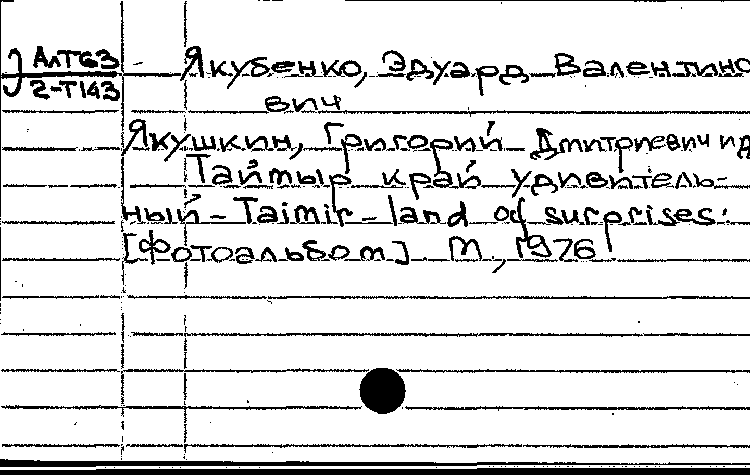 АлТ63
2-Т143
Якубенко, Эдуард Валентино
вич
Якушкин, Григорий Дмитриевич и д
Таймыр край удивитель-
ный - Taimir - land of surprises:
[Фотоальбом]. М, 1976